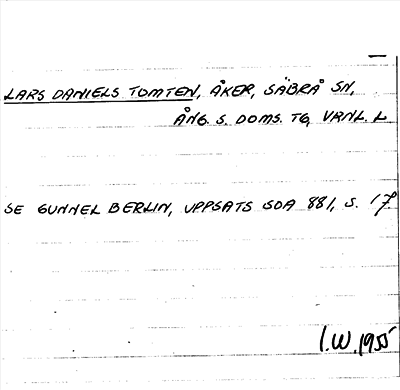 LARS DANIELS TOMTEN, ÅKER, SÄBRÅ SN,
ÅNG. S. DOMS. TG, VRNL. L
SE GUNNEL BERLIN, UPPSATS SOA 881, S. 17
I.W. 1955